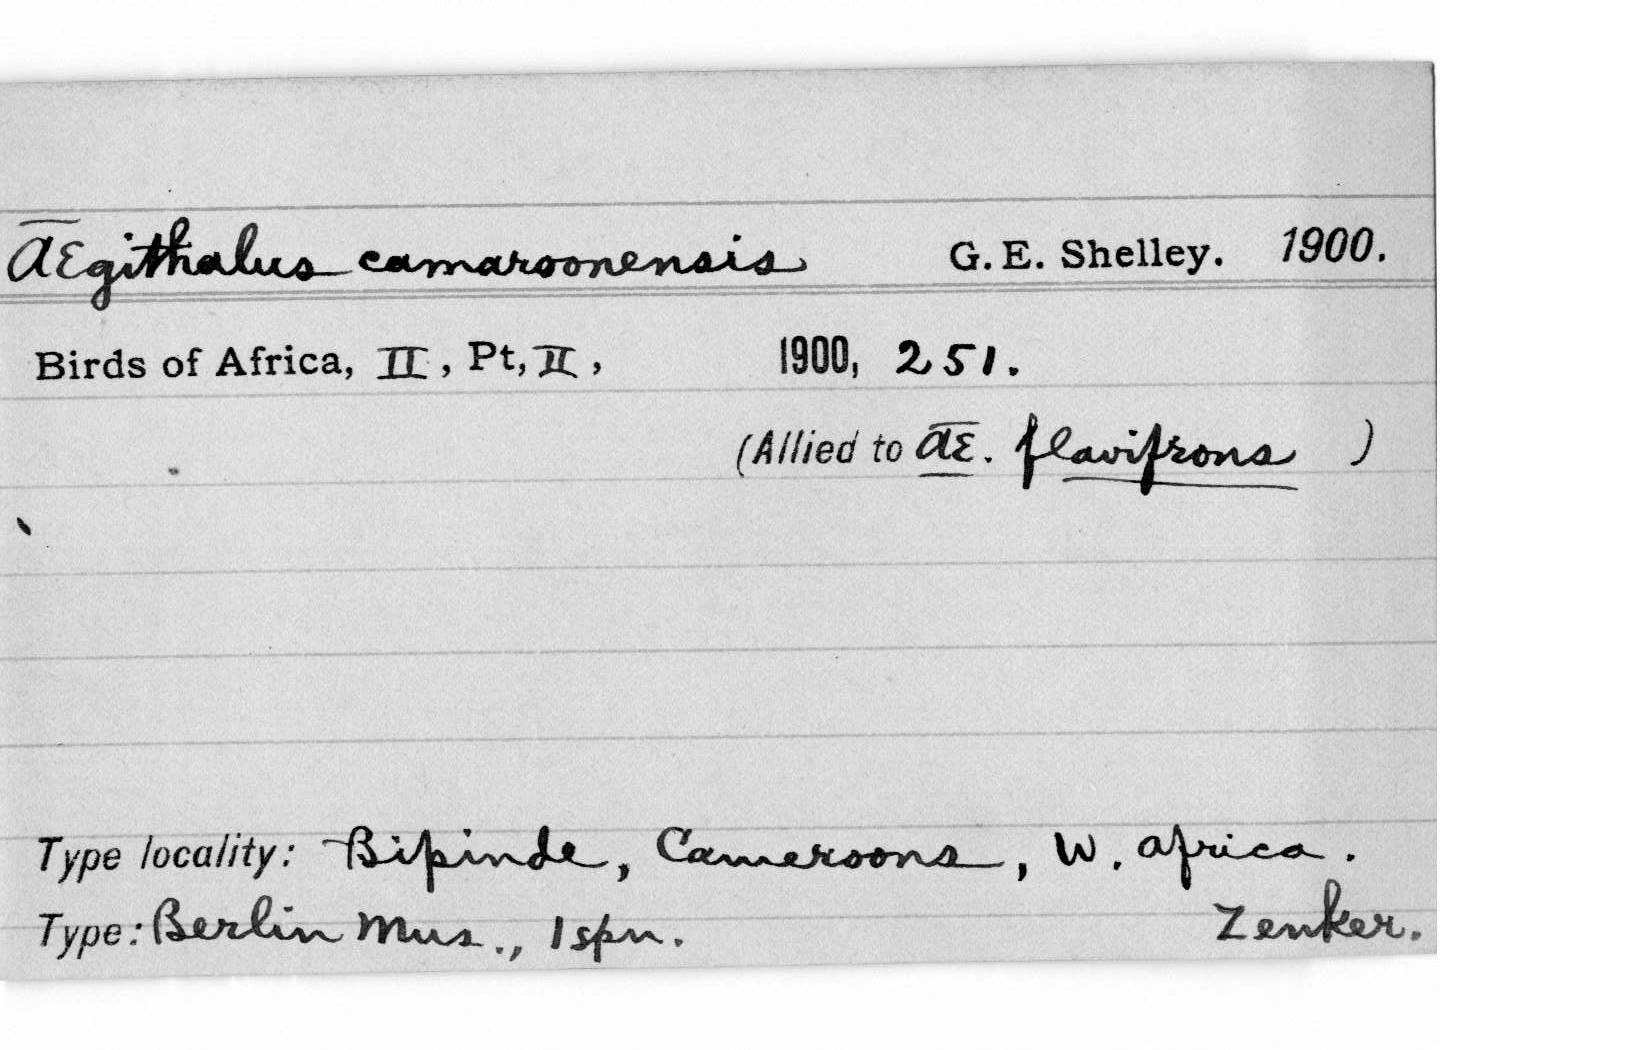 Ægithalus camaroonensis G. E. Shelley. 1900.
Birds of Africa, II, Pt, II, 1900, 251.
(Allied to Æ. flavifrons )
Type locality: Bipinde, Cameroons, W. Africa.
Type: Berlin Mus., 1 spn. Zenker.